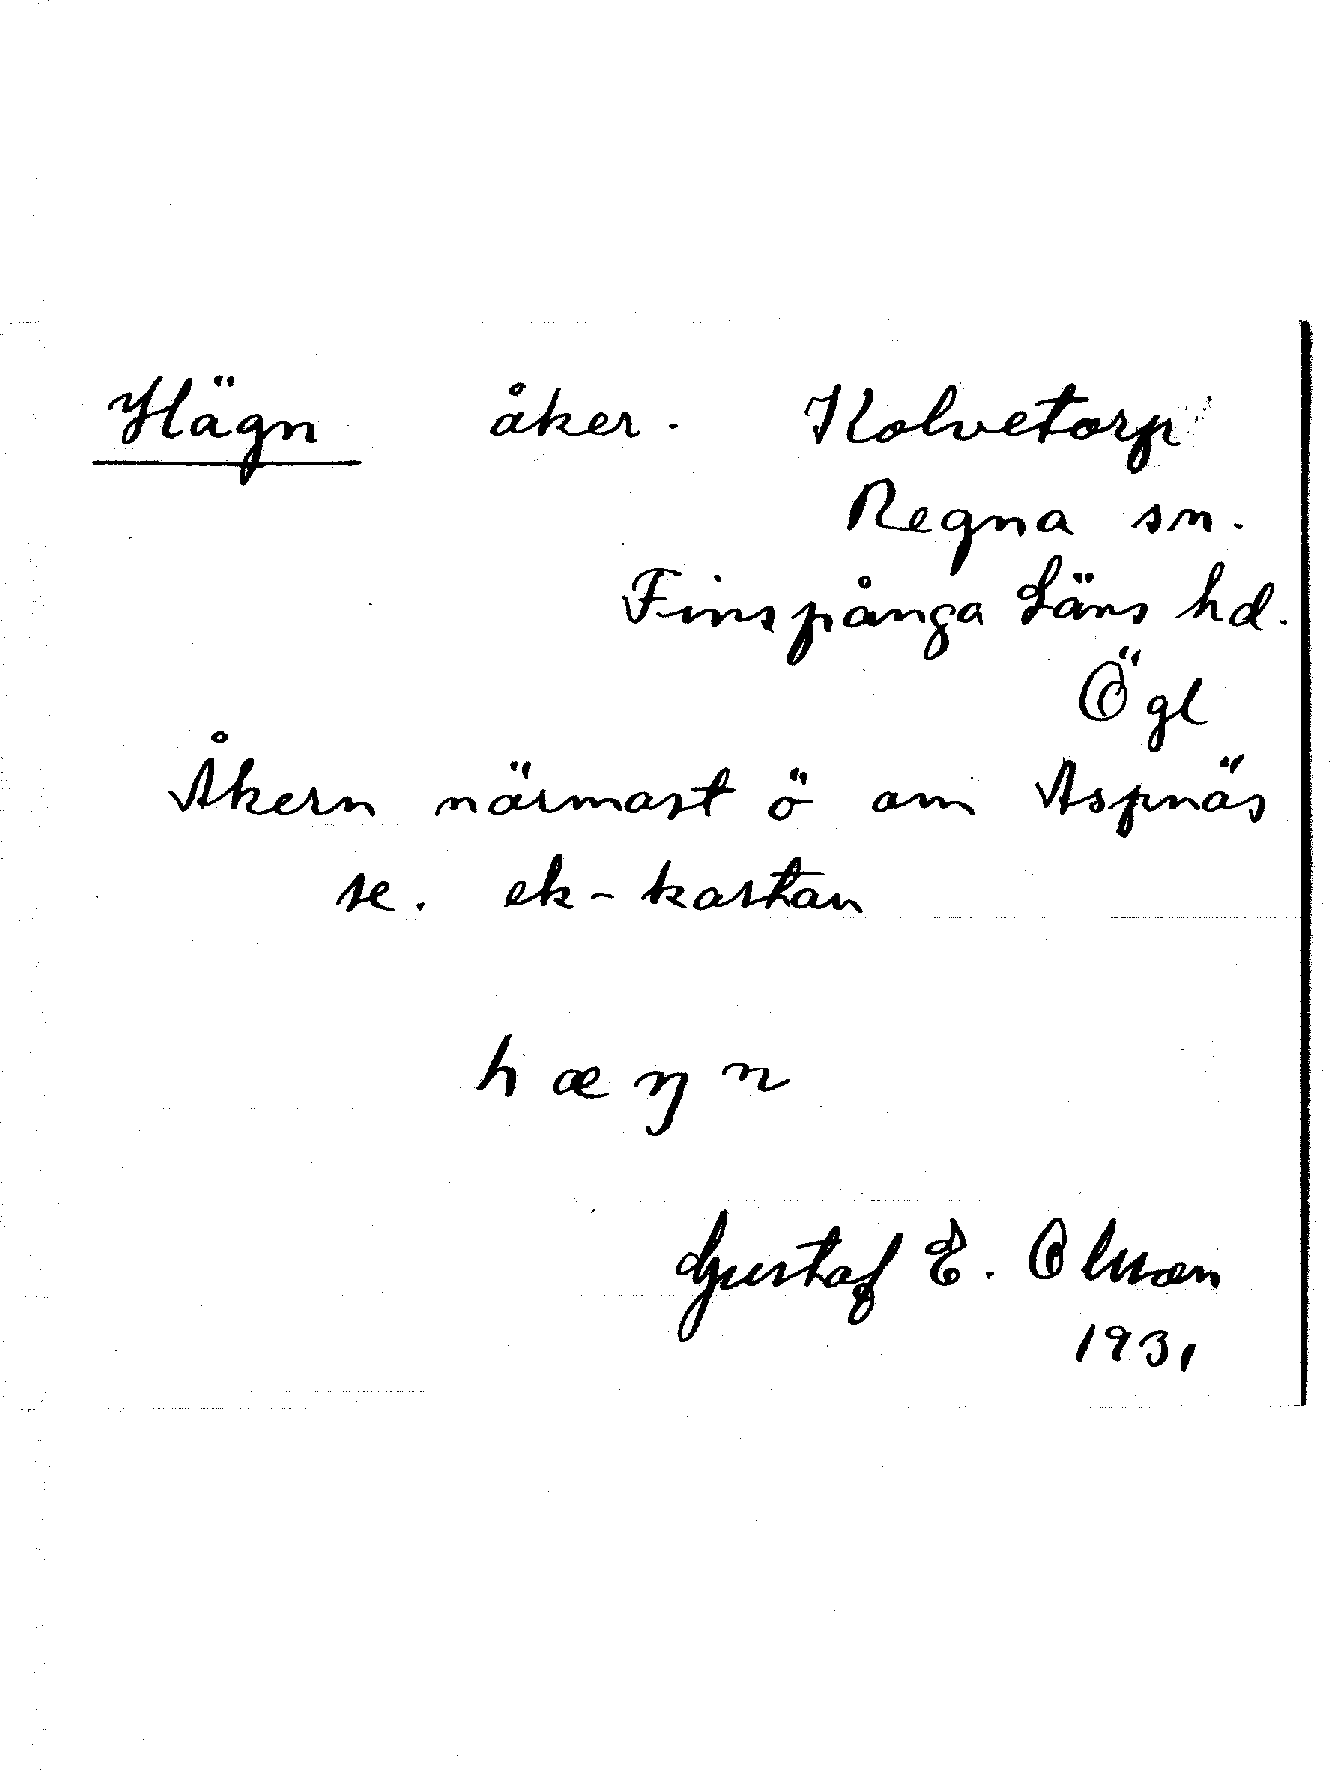 Hägn åker. Kolvetorp
Regna sn.
Finspånga Läns hd.
Ögl
Åkern närmast ö om Aspnäs
se. ek-kartan
hæŋn
Gustaf E. Olsson
1931